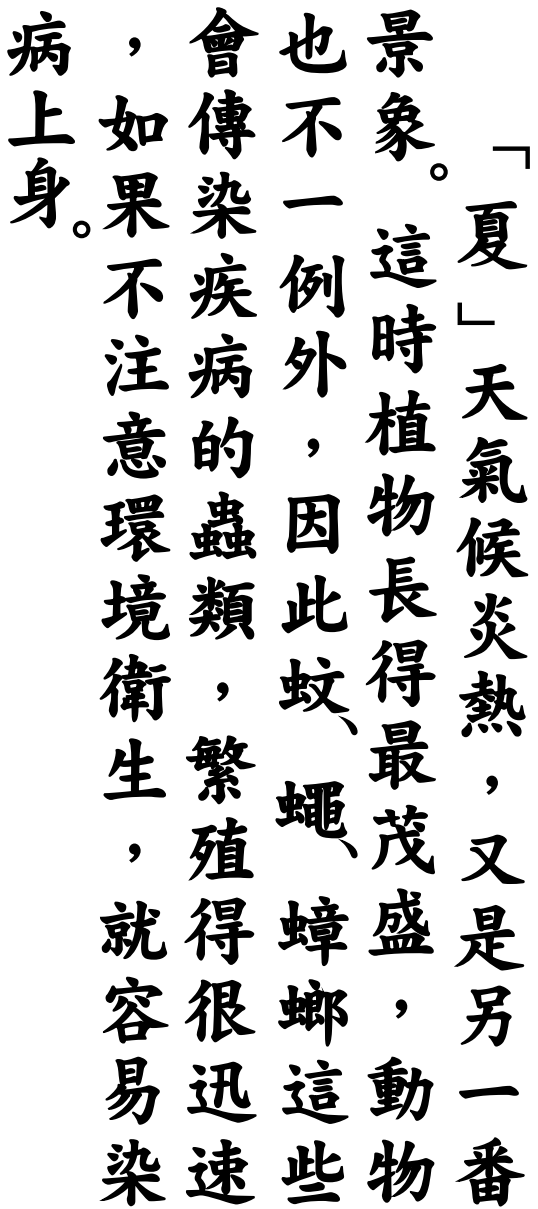 「夏」天氣候炎熱，又是另一番
景象。這時植物長得最茂盛，動物
也不一例外，因此蚊、蠅、蟑螂這些
會傳染疾病的蟲類，繁殖得很迅速
，如果不注意環境衛生，就容易染
病上身。